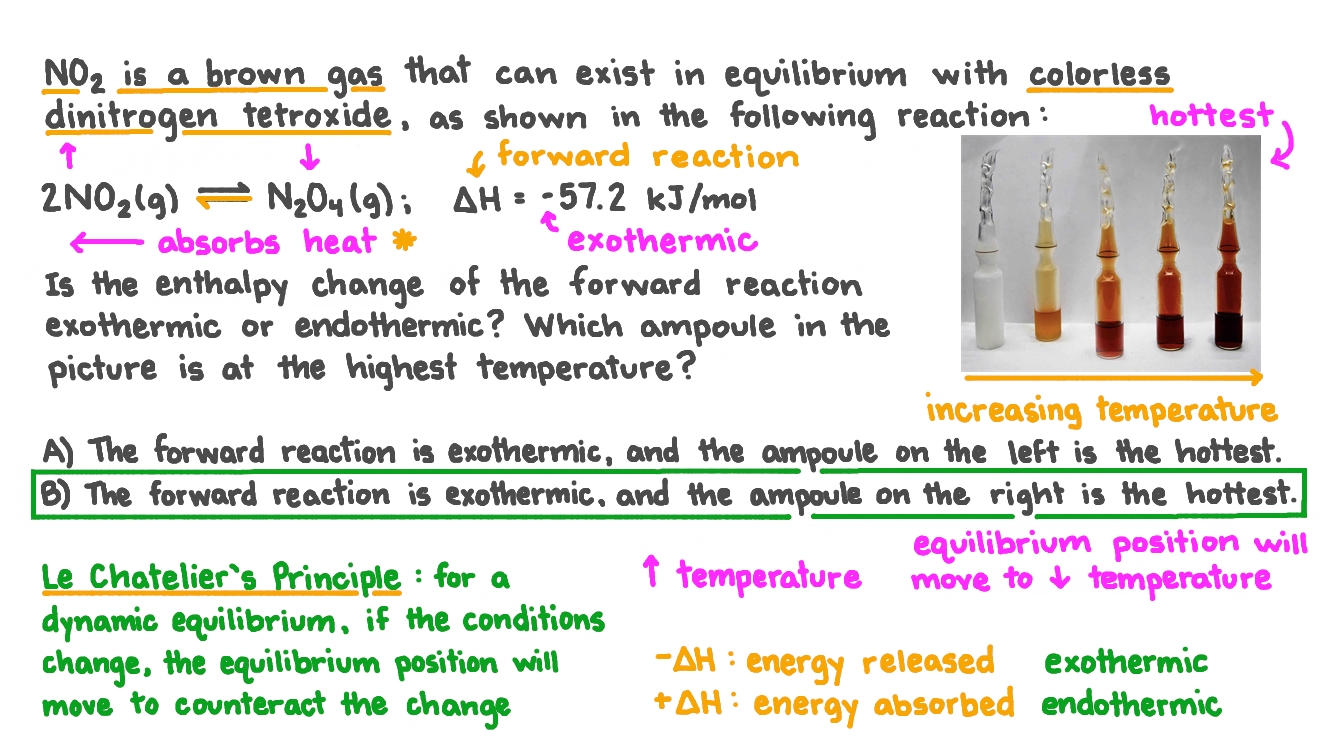 NO₂ is a brown gas that can exist in equilibrium with colorless
dinitrogen tetroxide, as shown in the following reaction:
hottest
↑ ↓ forward reaction
2NO₂(g) ⇌ N₂O₄(g); ΔH = -57.2 kJ/mol
← absorbs heat * exothermic
Is the enthalpy change of the forward reaction
exothermic or endothermic? Which ampoule in the
picture is at the highest temperature?
increasing temperature
A) The forward reaction is exothermic, and the ampoule on the left is the hottest.
B) The forward reaction is exothermic, and the ampoule on the right is the hottest.
Le Chatelier`s Principle : for a
dynamic equilibrium, if the conditions
change, the equilibrium position will
move to counteract the change
↑ temperature
equilibrium position will
move to ↓ temperature
-ΔH : energy released exothermic
+ΔH : energy absorbed endothermic